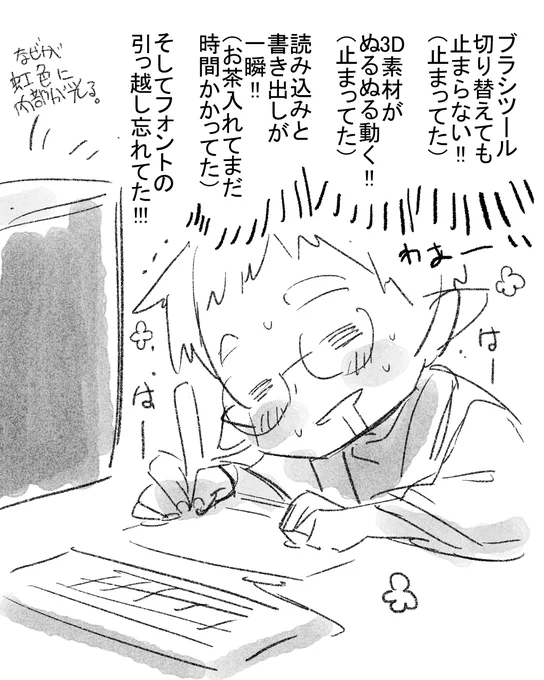 ブラシツール
切り替えても
止まらない!!
（止まってた）
3D素材が
ぬるぬる動く!!
（止まってた）
読み込みと
書き出しが
一瞬!!
（お茶入れてまだ
時間かかってた）
そしてフォントの
引っ越し忘れてた!!!
なぜか
虹色に
内部が光る。
わぁー
はー
はー